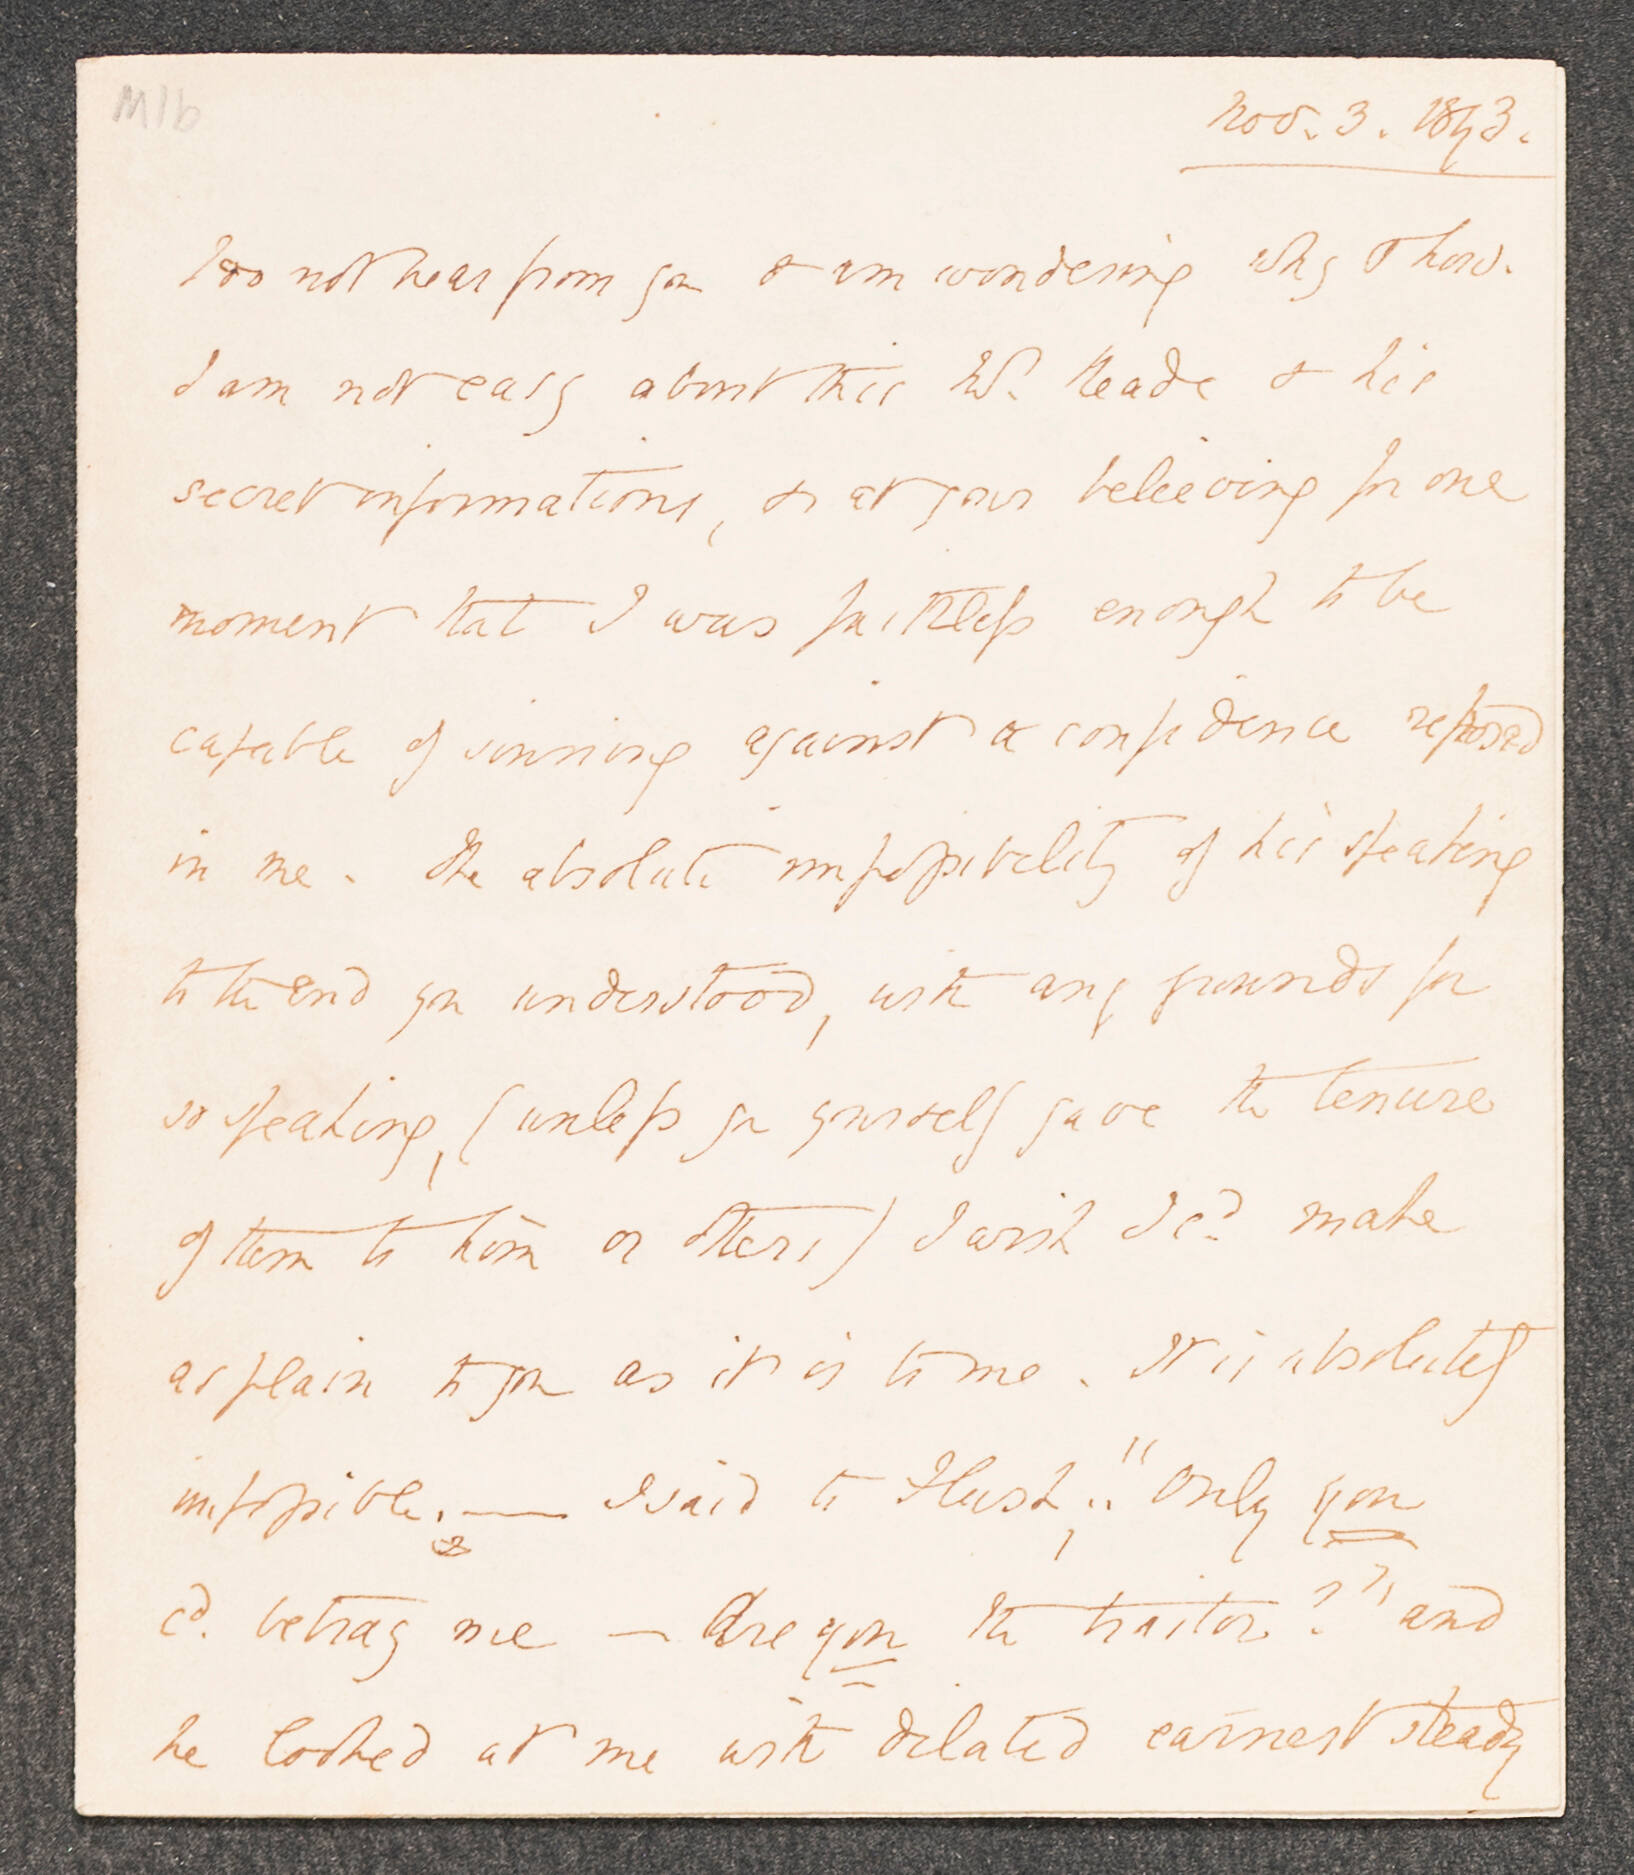 M1b
Nov. 3. 1843.
I do not hear from you & am wondering why & how.
I am not easy about this Mr. Reade & his
secret informations, or at your believing for one
moment that I was faithless enough to be
capable of sinning against a confidence reposed
in me. The absolute impossibility of his speaking
to the end you understood, with any grounds for
so speaking, (unless you yourself gave the tenure
of them to him or others) I wish I cd. make
as plain to you as it is to me. It is absolutely
impossible. — I said to Flush, "Only you
cd. betray me — Are you the traitor?" and
he looked at me with dilated earnest steady